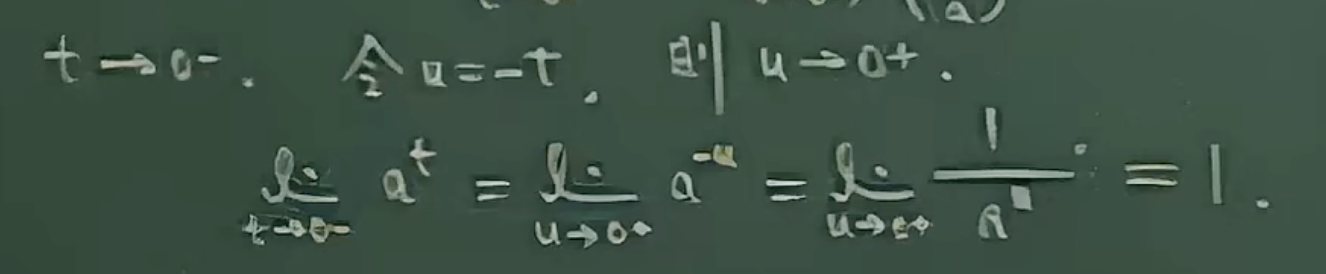 t→0-. 令 u=-t. 则 u→0+.
lim_{t→0-} a^t = lim_{u→0+} a^{-u} = lim_{u→0+} 1/a^u = 1.